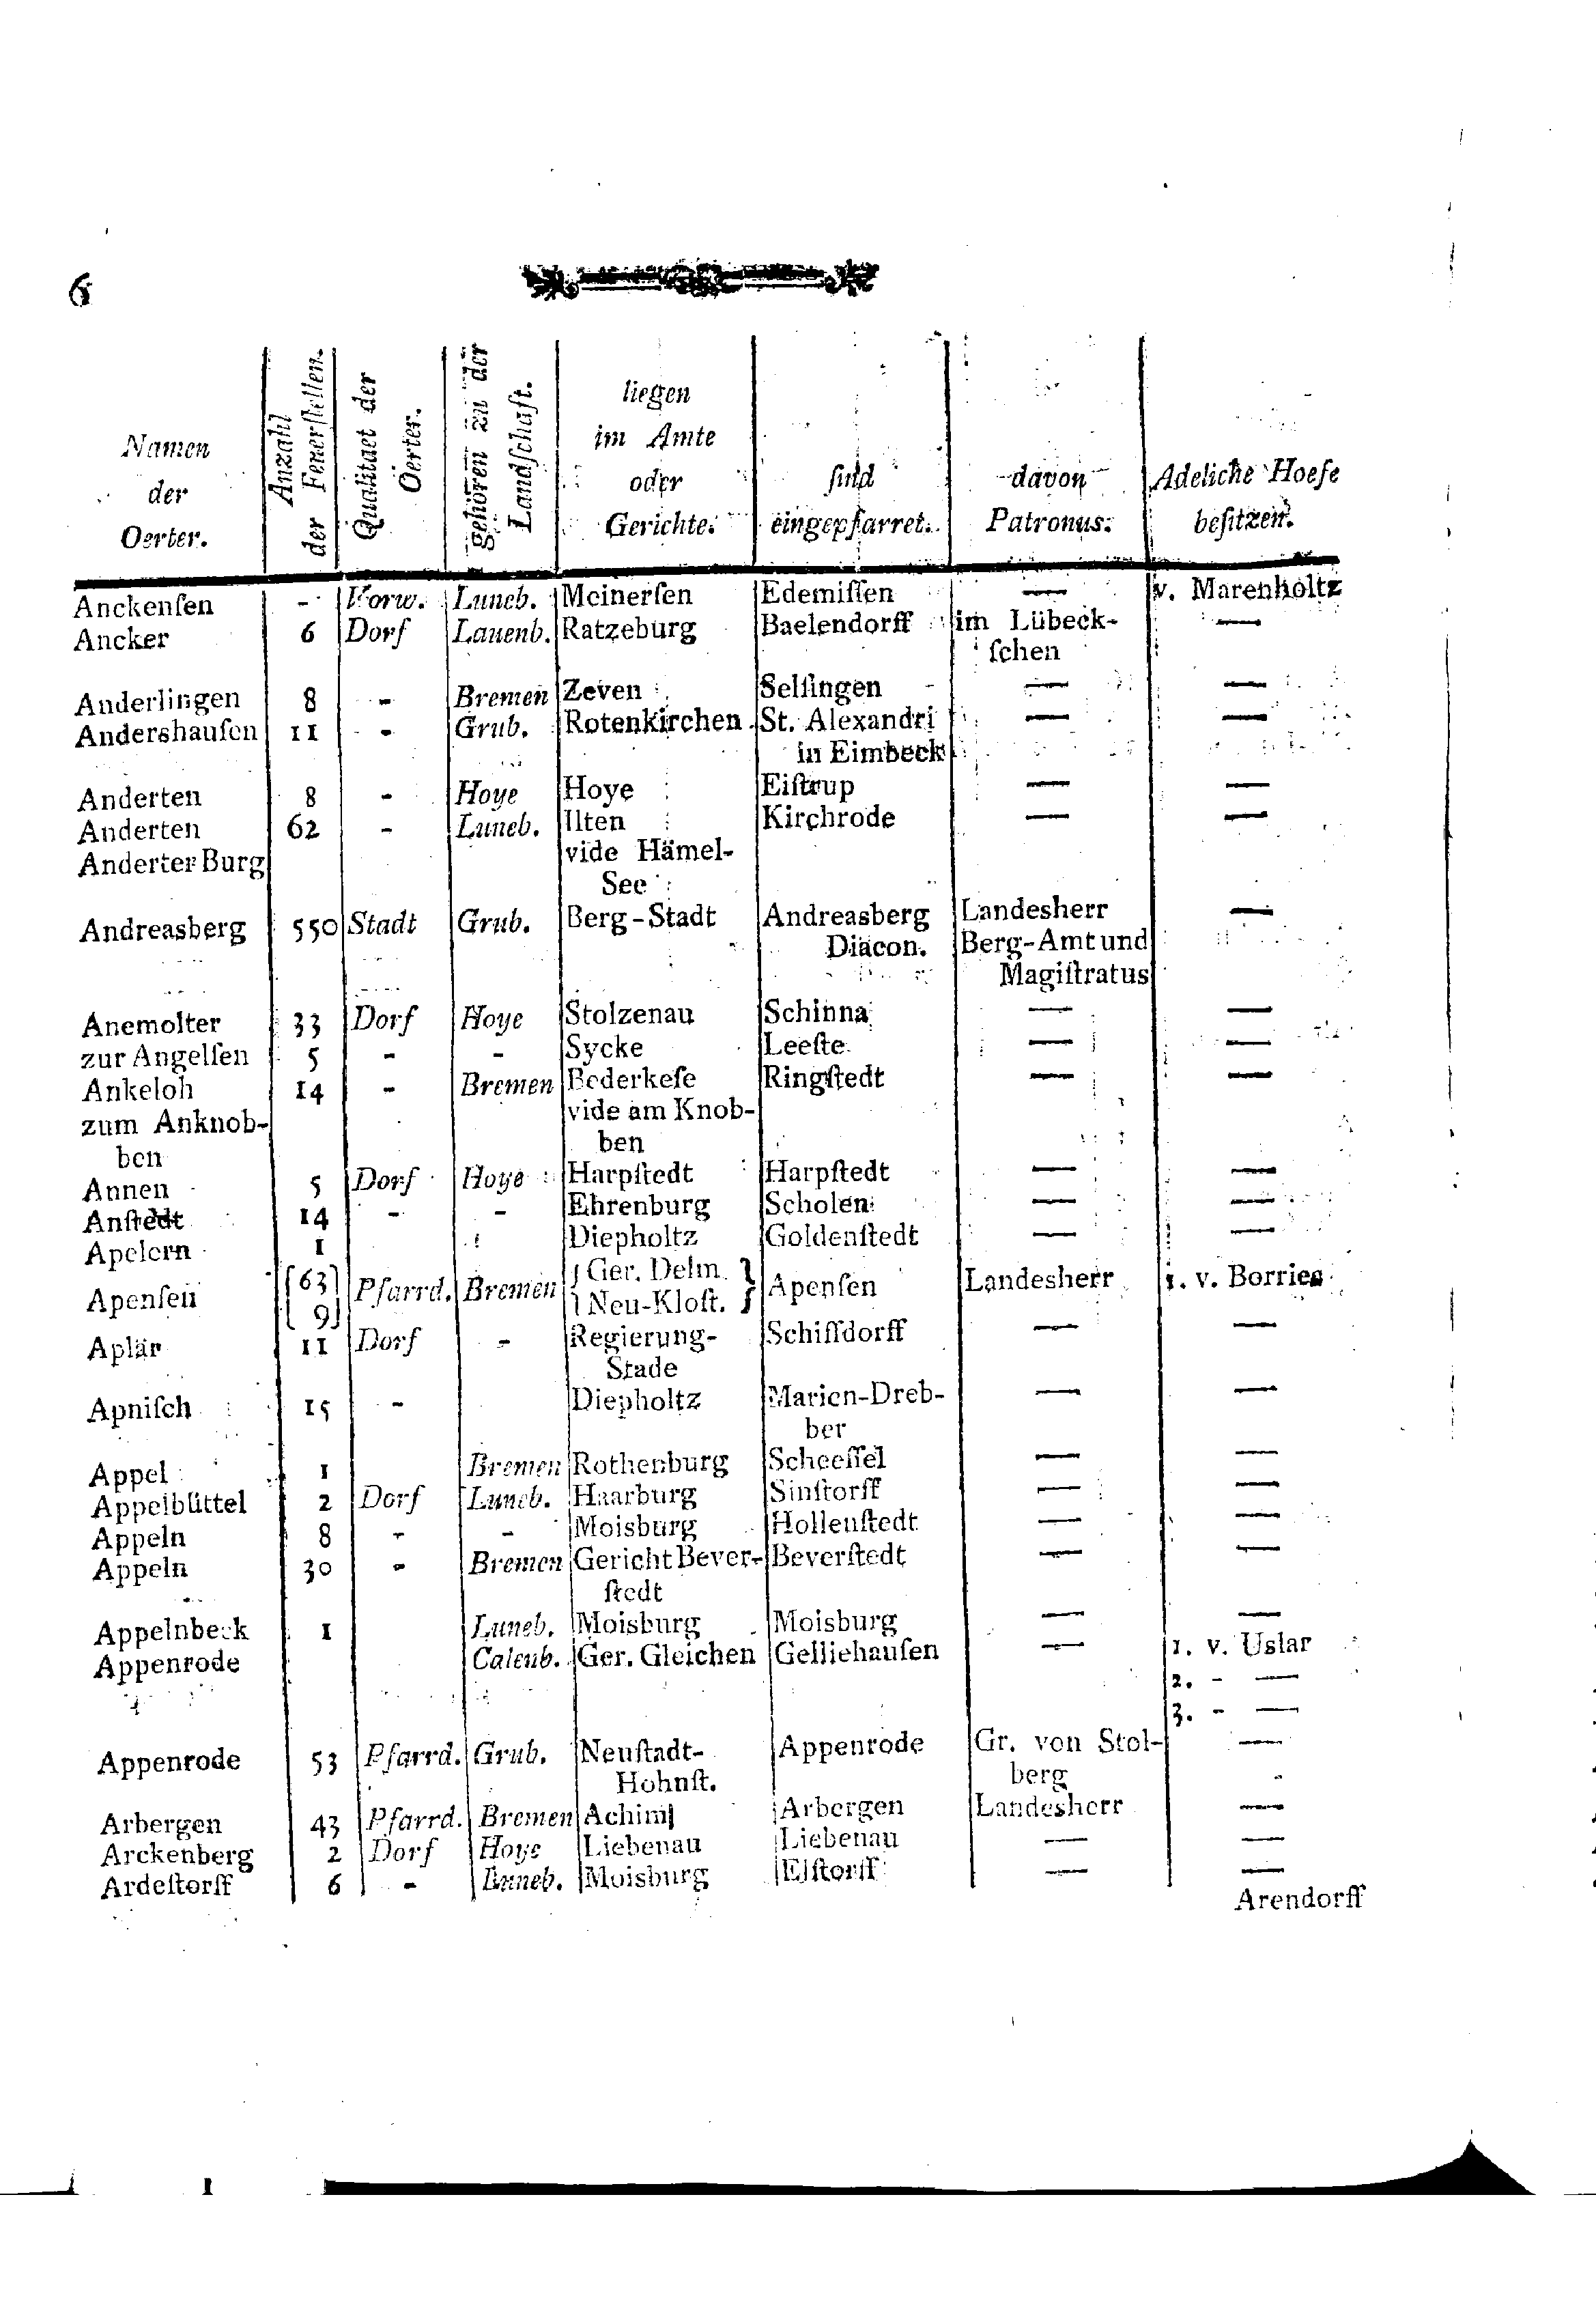 6
Namen der Oerter. | Anzahl der Feuerſtellen. | Qualitaet der Oerter. | gehören zu der Landſchaft. | liegen im Amte oder Gerichte. | ſind eingepfarret. | davon Patronus. | Adeliche Hoefe beſitzen.
Anckenſen - Vorw. Luneb. Meinerſen Edemiſſen — v. Marenholtz
Ancker 6 Dorf Lauenb. Ratzeburg Baelendorff im Lübeck- —
ſchen
Anderlingen 8 - Bremen Zeven Selſingen — —
Andershauſen 11 - Grub. Rotenkirchen St. Alexandri — —
in Eimbeck
Anderten 8 - Hoye Hoye Eiſtrup — —
Anderten 62 - Luneb. Ilten Kirchrode — —
Anderter Burg vide Hämel-
See
Andreasberg 550 Stadt Grub. Berg-Stadt Andreasberg Landesherr —
Diacon. Berg-Amt und
Magiſtratus
Anemolter 33 Dorf Hoye Stolzenau Schinna — —
zur Angelſen 5 - - Sycke Leeſte — —
Ankeloh 14 - Bremen Bederkeſe Ringſtedt — —
zum Anknob- vide am Knob-
ben ben
Annen 5 Dorf Hoye Harpſtedt Harpſtedt — —
Anſtedt 14 - - Ehrenburg Scholen — —
Apelern 1 Diepholtz Goldenſtedt — —
Apenſen {63} {9} Pfarrd. Bremen {Ger. Delm.} {Neu-Kloſt.} Apenſen Landesherr 1. v. Borries
Aplär 11 Dorf - Regierung- Schiffdorff — —
Stade
Apniſch 15 - Diepholtz Marien-Dreb- — —
ber
Appel 1 Bremen Rothenburg Scheeſſel — —
Appelbüttel 2 Dorf Luneb. Haarburg Sinſtorff — —
Appeln 8 - - Moisburg Hollenſtedt — —
Appeln 30 - Bremen Gericht Bever- Beverſtedt — —
ſtedt
Appelnbeck 1 Luneb. Moisburg Moisburg — —
Appenrode Calenb. Ger. Gleichen Gelliehauſen — 1. v. Uslar
2. - —
3. - —
Appenrode 53 Pfarrd. Grub. Neuſtadt- Appenrode Gr. von Stol- —
Hohnſt. berg
Arbergen 43 Pfarrd. Bremen Achim Arbergen Landesherr —
Arckenberg 2 Dorf Hoye Liebenau Liebenau — —
Ardeſtorff 6 - Luneb. Moisburg Elſtorff — —
Arendorff